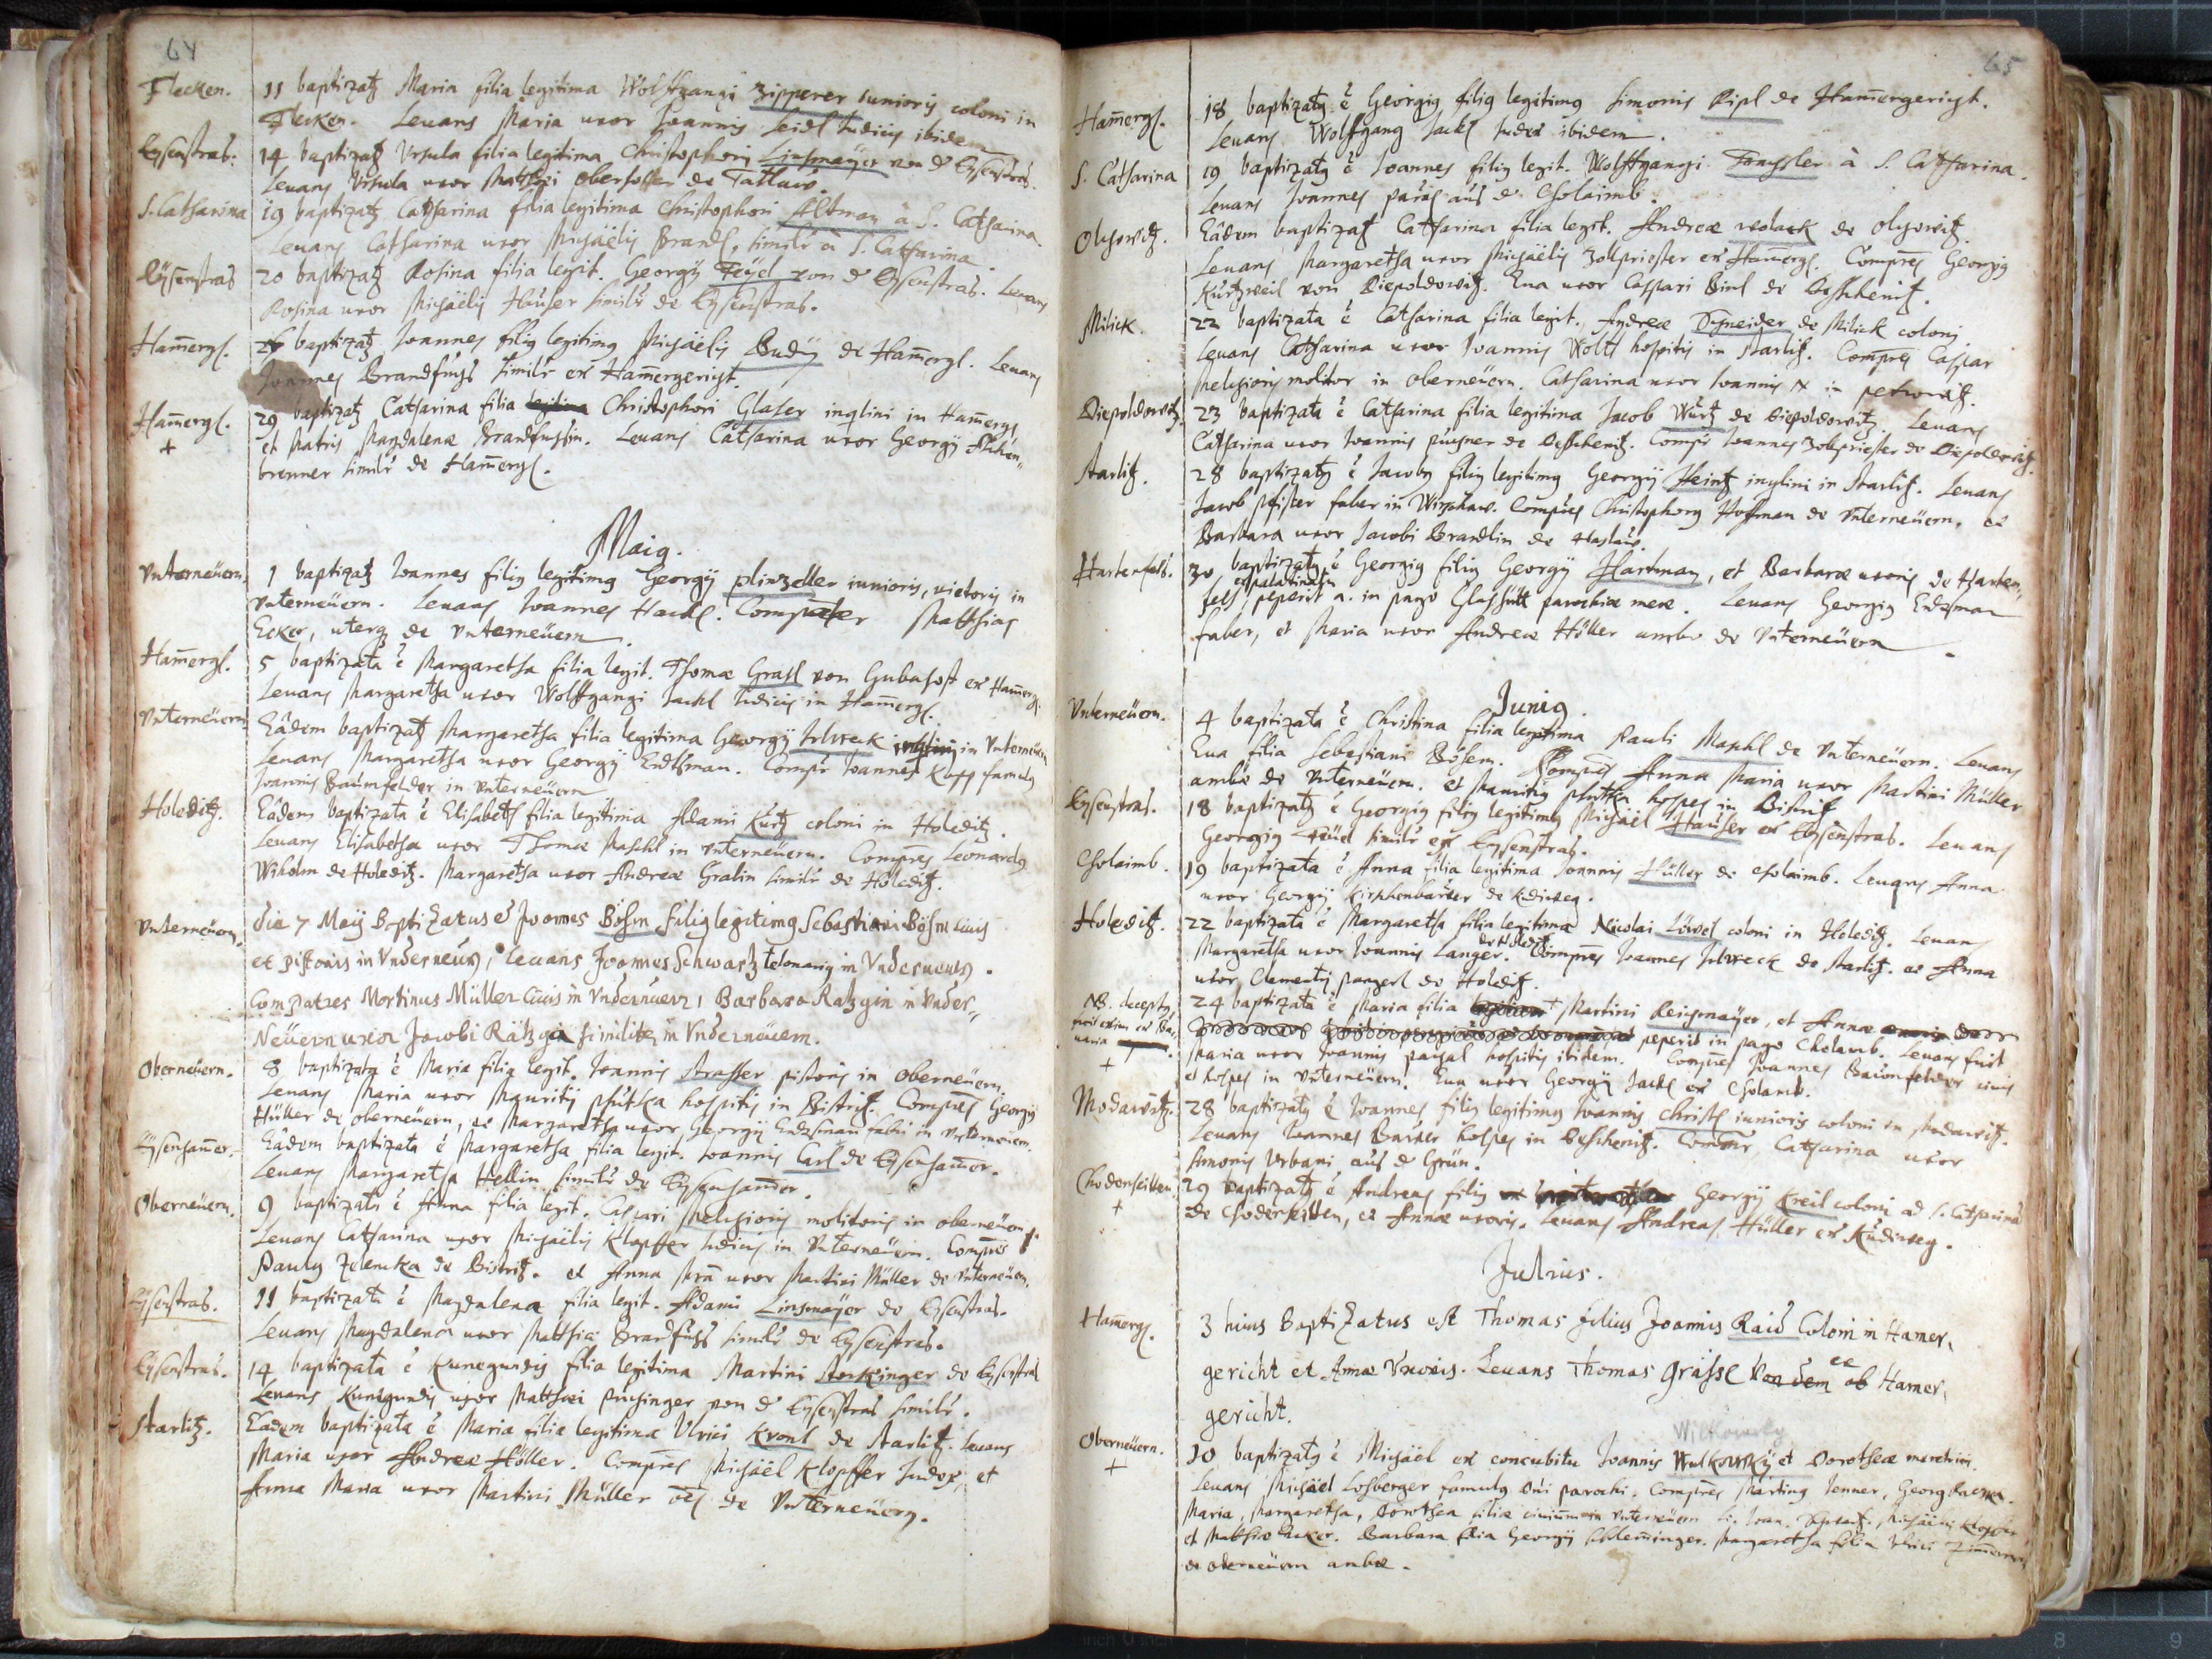 64
Flecken. 11 baptizatz Maria filia legitima Wolffgangi Zipperer iunioris coloni in
Flecken. Levans Maria uxor Joannis Seidl Iudicis ibidem
Eysenstras: 14 baptizatz Vrsula filia legitima Christophori Linsmayer von d Eysenstras.
Levans Vrsula uxor Matthei de Tatlaw.
S. Catharina 19 baptizatz Catharina filia legitima Christophori Altman à S. Catharina.
Levans Catharina uxor Michaëlis Brandl, similr à S. Catharina.
Eysenstras 20 baptizatz Rosina filia legit. Georgÿ Feÿel von d Eysenstras. Levans
Rosina uxor Michaëlis Hauser similr de Eysenstras.
Hamergl. baptizatz Joannes filig legitimg Michaëlis Budÿ de Hamergl. Levans
Joannes Brandfuhs similr ex Hamergericht.
Hamergl. 29 baptizatz Catharina filia Christophori Glaser inqlini in Hamergl
+ et Matris Magdalenæ Brandfussin. Levans Catharina uxor Georgÿ
brenner similr de Hamergl.
Maig.
Vnterneüern. 1 baptizatz Joannes filig legitimg Georgÿ Plinzeller iunioris, vietoris in
Vnterneüern. Levans Joannes Hackl. Compater Matthias
Ecker, uterq de Vnterneüern.
Hamergl. 5 baptizata ē Margaretha filia legit. Thomæ Grasl von Gubahost ex Hamergl.
Levans Margaretha uxor Wolffgangi Jackl Iudicis in Hamergl.
Vnterneüern Eâdem baptizatz Margaretha filia legitima Georgÿ Irlweck in Vnterneüern
Levans Margaretha uxor Georgÿ Endtsman. Compr Joannes Kopp famulg
Joannis Baumfelder in Vnterneüern
Holeditz. Eâdem baptizata ē Elisabeth filia legitima Adami Kurtz coloni in Holeditz.
Levans Elisabetha uxor Thomæ Maschl in Vnterneüern. Compres Leonardg
Wihelm de Holeditz. Margaretha uxor Andreæ Gralin similr de Holeditz.
Vnterneüern. die 7 Maÿ Baptizatus ē Joannes Böhm filig legitimg Sebastiani Böhm civis
et pistoris in Vnderneüern, levans Joannes Schwartz telonarig in Vnderneuern.
Compatres Martinus Müller Civis in Vnderneuern, Barbara Ratzgin in Vnder„
Neüern uxor Jacobi Rätzgin similiter in Vnderneuern.
Oberneüern. 8 baptizata ē Maria filia legit. Joannis Strasser pistoris in Oberneüern.
Levans Maria uxor Mauritÿ Phutka hospitis in Bistritz. Compres Georgig
Hüller de Oberneüern, et Margaretha uxor Georgÿ Endsman fabri in Vnterneüern.
Eysenhamer. Eâdem baptizata ē Margaretha filia legit. Joannis Carl de Eysenhamer.
Levans Margaretha Hellin similr de Eysenhamer.
Oberneüern. 9 baptizata ē Anna filia legit. Caspari Melchioris molitoris in Oberneüern.
Levans Catharina uxor Michaëlis Klopffer Iudicis in Vnterneüern. Compres
Paulg Zelenka de Bistritz. et Anna Mra uxor Martini Müller de Vnterneüern.
Eysenstras. 11 baptizata ē Magdalena filia legit. Adami Linsmaÿer de Eysenstras.
Levans Magdalena uxor Matthiæ Brandfuss similr de Eysenstras.
Eysenstras. 14 baptizata ē Kunegundis filia legitima Martini Aschinger de Eysenstras
Levans Kunigundis uxor Matthæi Puchinger von d Eysenstras similr.
Starlitz. Eadem baptizata ē Maria filia legitima Vlrici Kronl de Starlitz. Levans
Maria uxor Andreæ Höller. Compres Michaël Klopffer Iudex, et
Anna Maria uxor Martini Müller oēs de Vnterneüern.
65
Hamergl. 18 baptizatg ē Georgig filig legitimg Simonis Pipl de Hamergericht.
Levans Wolfgang Jackl Iudex ibidem.
S. Catharina 19 baptizatg ē Joannes filig legit. Wolffgangi à S. Catharina.
Levans Joannes aus d Cholaimb.
Olchowitz. Eâdem baptizatz Catharina filia legit. Andreæ Wolack de Olchowitz.
Levans Margaretha uxor Michaëlis Zollpriester ex Hamergl. Compres Georgig
Kurtzweil von Diepoldowitz. Eua uxor Caspari Binl de Deschenitz.
Milick. 22 baptizata ē Catharina filia legit. Andreæ Schneider de Milick coloni
Levans Catharina uxor Joannis Woltl hospitis in Starlitz. Compres Caspar
Melchioris molitor in Oberneüern. Catharina uxor Joannis N in
Diepoldowitz. 23 baptizata ē Catharina filia legitima Jacob Wurtz de Diepoldowitz. Levans
Catharina uxor Joannis Puchner de Deschenitz. Compr Joannes Zolpriester de Diepoldowitz.
Starlitz. 28 baptizatg ē Jacobg filig legitimg Georgÿ Heintz inqlini in Starlitz. Levans
Jacob Pfister faber in Compres Christophorg Hoffman de Vnterneüern. et
Barbara uxor Jacobi Brandlin de
Hartenfels. 30 baptizatg ē Georgig filig Georgÿ Hartman, et Barbaræ uxoris de Harten„
fels, ex palatinatu peperit a. in pago Glashütt parochiæ meæ. Levans Georgig Endsman
faber, et Maria uxor Andreæ Höller ambo de Vnterneüern.
Junig.
Vnterneüern. 4 baptizata ē Christina filia legitima Pauli Maschl de Vnterneüern. Levans
Eua filia Sebastiani Böhem. Compres Anna Maria uxor Martini Müller
ambæ de Vnterneüern. et Mauritig Phutka hospes in Bistritz
Eysenstras. 18 baptizatg ē Georgig filig legitimg Michaël Hauser ex Eysenstras. Levans
Georgig Feüel similr ex Eysenstras.
Cholaimb. 19 baptizata ē Anna filia legitima Joannis Hüller de Cholaimb. Levans Anna
uxor Georgÿ Kirschenbauer de Kudiweg.
Holeditz. 22 baptizata ē Margaretha filia legitima Nicolai Löwel coloni in Holeditz. Levans
Margaretha uxor Joannis Langer. de Holeditz Compres Joannes Irlweck de Starlitz. et Anna
uxor Clementis Pangerl de Holeditz.
24 baptizata ē Maria filia Martini Reichmaÿer, et Annæ
peperit in pago Cholamb. Levans fuit
Maria uxor Joannis hospitis ibidem. Compres Joannes Baumfelder civis
+ et hospes in Vnterneüern. Eua uxor Georgÿ Jackl ex Cholamb.
Modawitz. 28 baptizatg ē Joannes filig legitimg Joannis Christl iunioris coloni in Modawitz.
Levans Joannes Bauer hospes in Deschenitz. Commr Catharina uxor
Simonis Vrbani aus d Grün.
Chodenseitten. 29 baptizatg ē Andreas filig Georgÿ Kreil coloni ad S. Catharina
+ de Choderseitten, et Annæ uxoris. Levans Andreas Hüller ex Kudiweg.
Julius.
Hamergl. 3 huius Baptizatus est Thomas filius Joannis Raid Coloni in Hamer,
gericht et Annæ Vxoris. Levans Thomas Grässl von dem ob ex Hamer,
gericht.
Witkowsky
Oberneüern. 10 baptizatg ē Michaël ex concubitu Joannis Wulkowsky et Dorotheæ meretricis.
+ Levans Michael Losberger famulg Dni parochi. Compres Marting Jenner, Georg
Maria, Margaretha, Dorothea filiæ civium in Vnterneüern Joan. Schwartz, Michaëlis Klopffer
et Matthiæ Ecker. Barbara filia Georgÿ Schleminger. Margaretha filia Vlrici
de Oberneüern ambæ.